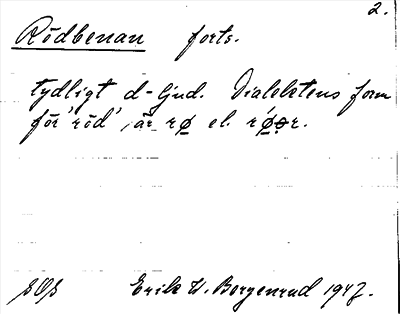 2.
Rödbenan forts.
tydligt d-ljud. Dialektens form
för 'röd', är rø el. røər.
Erik W. Borgenrud 1947.